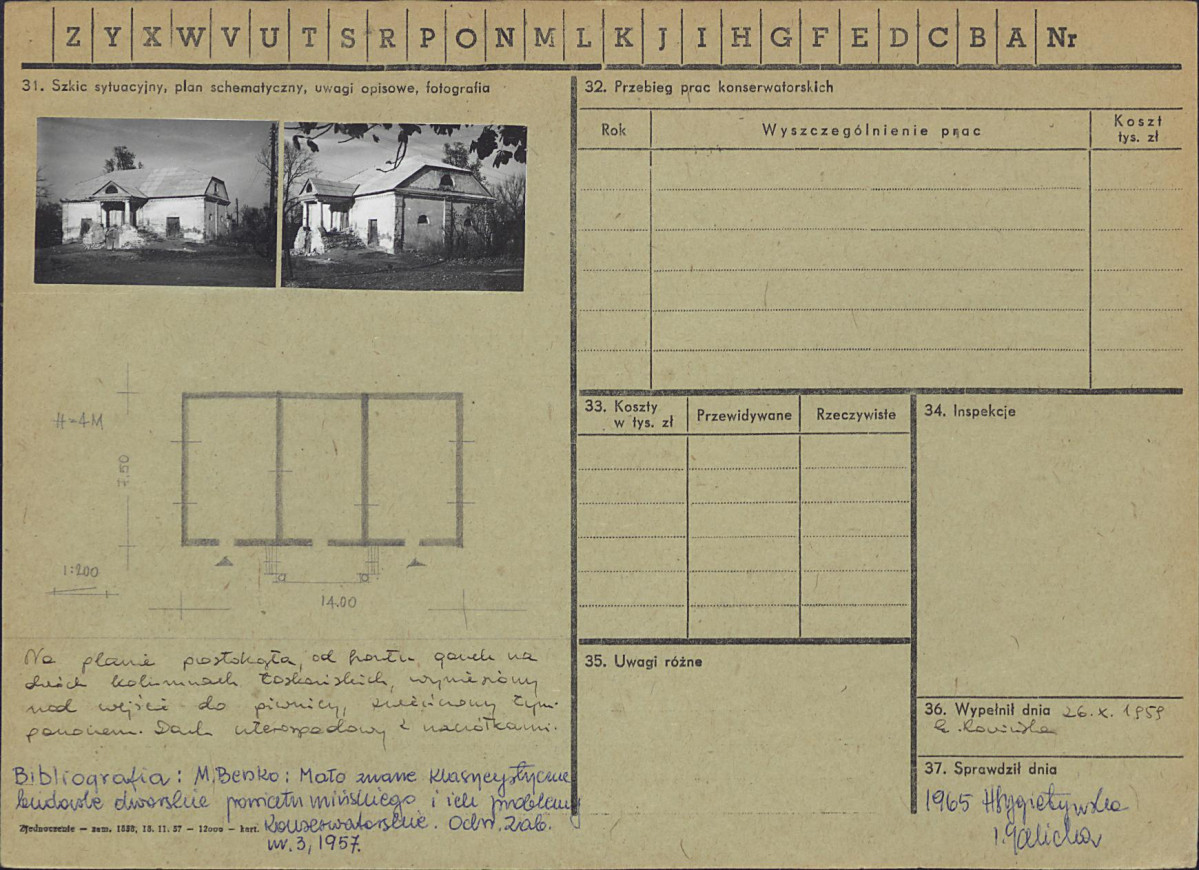 Z Y X W V U T S R P O N M L K J I H G F E D C B A Nr
31. Szkic sytuacyjny, plan schematyczny, uwagi opisowe, fotografia
H=4M
7.50
1:200
14.00
Na planie prostokąta, od frontu ganek na
dwóch kolumnach toskańskich, wyniesiony
nad wejście do piwnicy, zwieńczony tym-
panonem. Dach czterospadowy z naczółkami.
Bibliografia: M. Benko: Mało znane klasycystyczne
budowle dworskie powiatu mińskiego i ich problemy
konserwatorskie. Ochr. Zab.
nr. 3, 1957.
Zjednoczenie — zam. 1558, 15. 11. 57 — 12000 — kart.
32. Przebieg prac konserwatorskich
Rok Wyszczególnienie prac Koszt
tys. zł
33. Koszty
w tys. zł Przewidywane Rzeczywiste
34. Inspekcje
35. Uwagi różne
36. Wypełnił dnia 26.X.1959
37. Sprawdził dnia
1965
I. Galicka